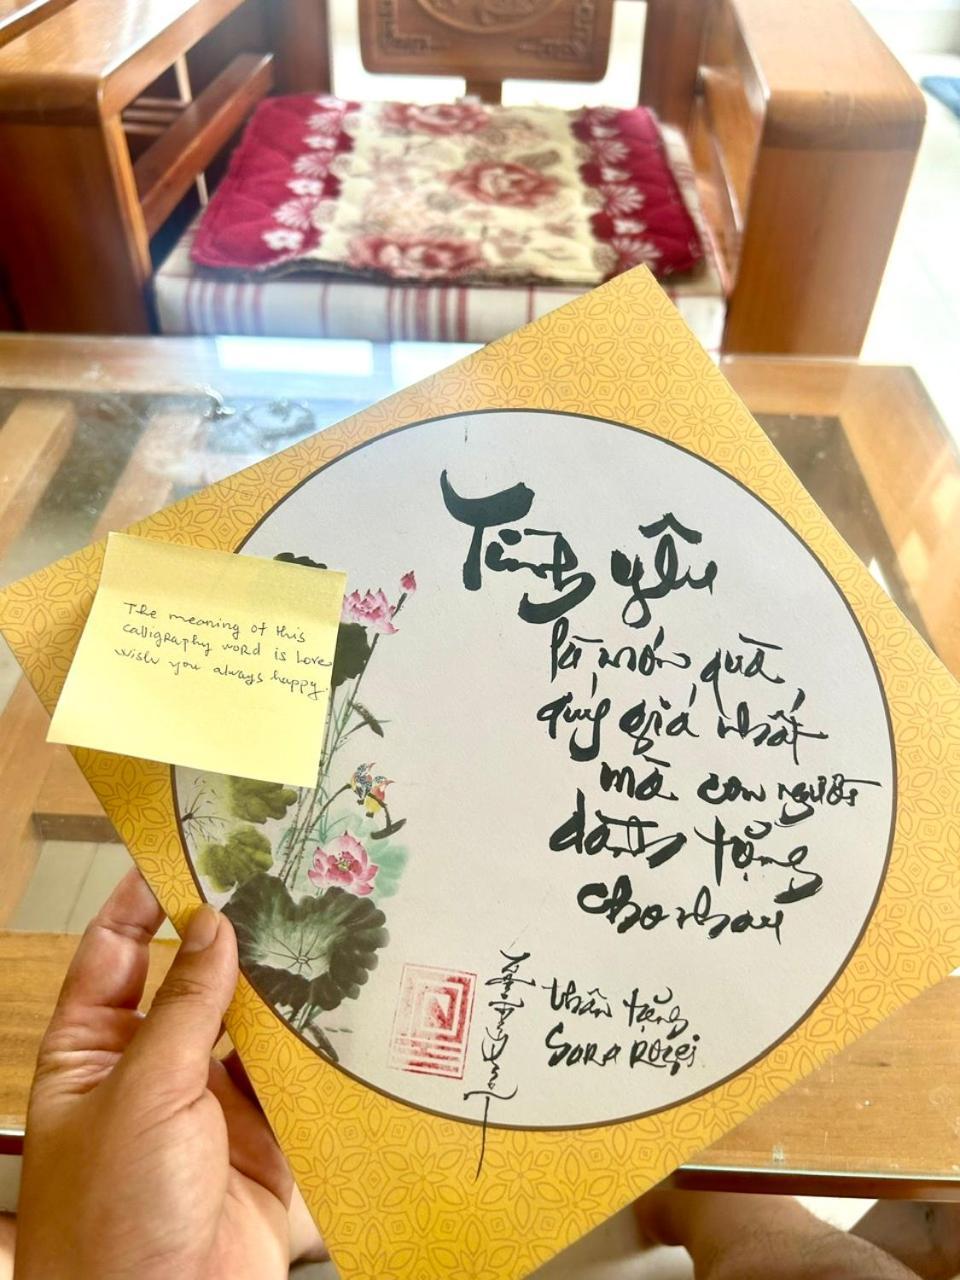 The meaning of this
calligraphy word is love
wish you always happy.
Tình yêu
là món quà
quý giá nhất
mà con người
dành tặng
cho nhau
thân tặng
SORA